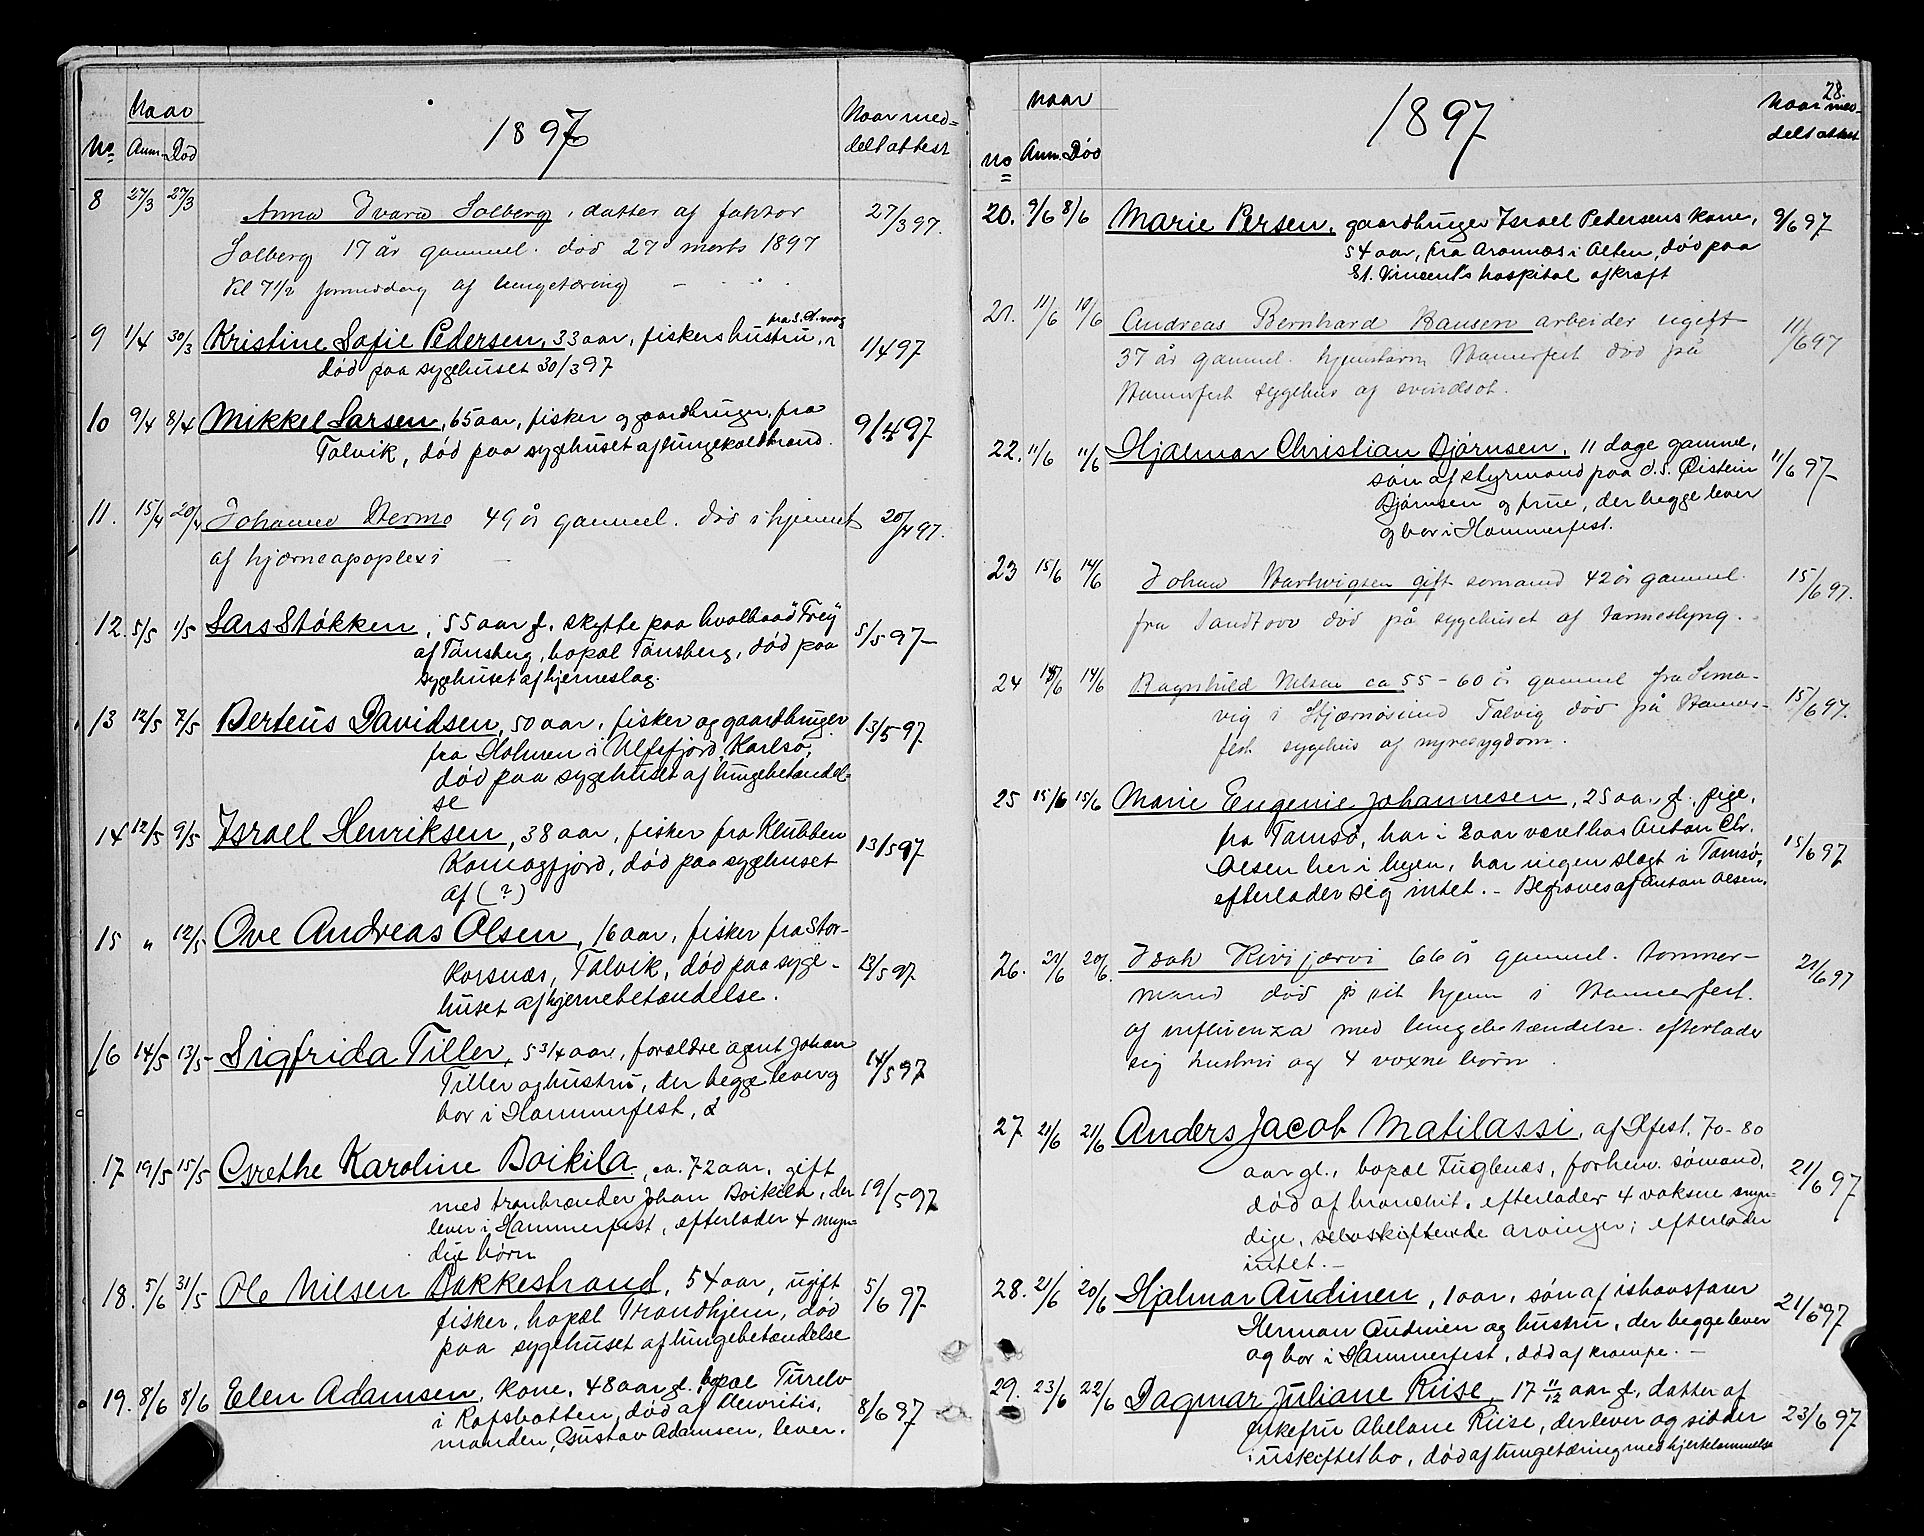 Naar
1897
Naar med=
delt attest
No Anm. Død
8 27/3 27/3 Anna Ivara Solberg, datter af faktor 27/3 97.
Solberg 17 år gammel. død 27 marts 1897
Kl 7 1/2 formiddag af lungetæring
9 1/4 30/3 Kristine Sofie Pedersen, 33 aar, fiskers hustru, 1/4 97
død paa sygehuset 30/3 97
10 9/4 8/4 Mikkel Larsen, 65 aar, fisker og gaardbruger, fra 9/4 97
Talvik, død paa sygehuset af lungekoldbrand.
11. 15/4 20/4 Johanne Mermo 49 år gammel. død i hjemmet 20/4 97.
af hjærneapoplexi
12. 5/5 1/5 Lars Støkken, 55 aar gl. skytte paa hvalbaad "Frey" 5/5 97
af Tønsberg, bopæl Tønsberg, død paa
sygehuset af hjerneslag.
13 12/5 7/5 Berteus Davidsen, 50 aar, fisker og gaardbruger 13/5 97
fra Holmen i Ulfsfjord, Karlsø,
død paa sygehuset af lungebetændel=
se
14 12/5 9/5 Israel Henriksen, 38 aar, fisker fra Klubben 13/5 97
Komagfjord, død paa sygehuset
af (?)
15 " 12/5 Ove Andreas Olsen, 16 aar, fisker fra Stor-
Korsnæs, Talvik, død paa syge- 13/5 97
huset af hjernebetændelse.
16 14/5 13/5 Sigfrida Tiller, 5 3/4 aar, forældre agent Johan 14/5 97
Tiller og hustru, der begge lever og
bor i Hammerfest,
17 19/5 15/5 Grethe Karoline Boikila, ca. 72 aar, gift
med tranbrænder Johan Boikila, der 19/5 97
lever i Hammerfest, efterlader 4 myn=
dige børn
18. 5/6 31/5 Ole Nilsen Bakkestrand, 54 aar, ugift 5/6 97
fisker, bopæl Trondhjem, død
paa sygehuset af lungebetændelse
19. 8/6 8/6 Elen Adamsen, kone, 48 aar gl. bopæl Turelv 8/6 97
i Rafsbotten, død af
manden, Gustav Adamsen, lever.
28.
Naar
1897
Naar med=
delt attest
No Anm. Død
20. 9/6 8/6 Marie Persen, gaardbruger Israel Pedersens kone, 9/6 97
54 aar, fra Aronnæs i Alten, død paa
St. Vincent's hospital af kræft
21. 11/6 10/6 Andreas Bernhard Hansen arbeider ugift 11/6 97
37 år gammel. hjemstavn Hammerfest død på
Hammerfest sygehus af svindsot.
22. 11/6 11/6 Hjalmar Christian Bjørnsen, 11 dage gammel, 11/6 97
søn af styrmand paa d.s. Øistein
Bjørnsen og frue, der begge lever
og bor i Hammerfest.
23 15/6 14/6 Johan Hartvigsen gift sømand 42 år gammel. 15/6 97.
fra Sandtorv død på sygehuset af tarmeslyng.
24 15/6 14/6 Ragnhild Nilsen ca 55-60 år gammel fra Sima-
vig i Stjærnøsund Talvig død på Hammer- 15/6 97.
fest sygehus af nyresygdom.
25 15/6 15/6 Marie Eugenie Johannesen, 25 aar gl. pige,
fra Tamsø, har i 2 aar været hos Anton Chr.
Olsen her i byen, har ingen slægt i Tamsø, 15/6 97
efterlader sig intet. - Begraves af Anton Olsen.
26. 21/6 20/6. Isak Kivijærvi 66 år gammel. tømmer- 21/6 97
mand død på sit hjem i Hammerfest.
af influenza med lungebetændelse. efterlader
sig hustru og 4 voxne børn.
27 21/6 21/6 Anders Jacob Matilassi, af Hfest, 70-80
aar gl., bopæl Fuglenæs, forhenv. sømand, 21/6 97
død af bronchit. efterlader 4 voksne myn-
dige, selvskiftende arvinger; efterlader
intet. -
28. 21/6 20/6 Hjalmar Audinen, 1 aar, søn af ishavsfarer 21/6 97
Herman Audinen og hustru, der begge lever
og bor i Hammerfest, død af krampe. -
29. 23/6 22/6 Dagmar Juliane Riise, 17 11/12 aar gl., datter af
enkefru Abelone Riise, der lever og sidder 23/6 97
i uskiftet bo, død af lungetæring med hjertelammelse